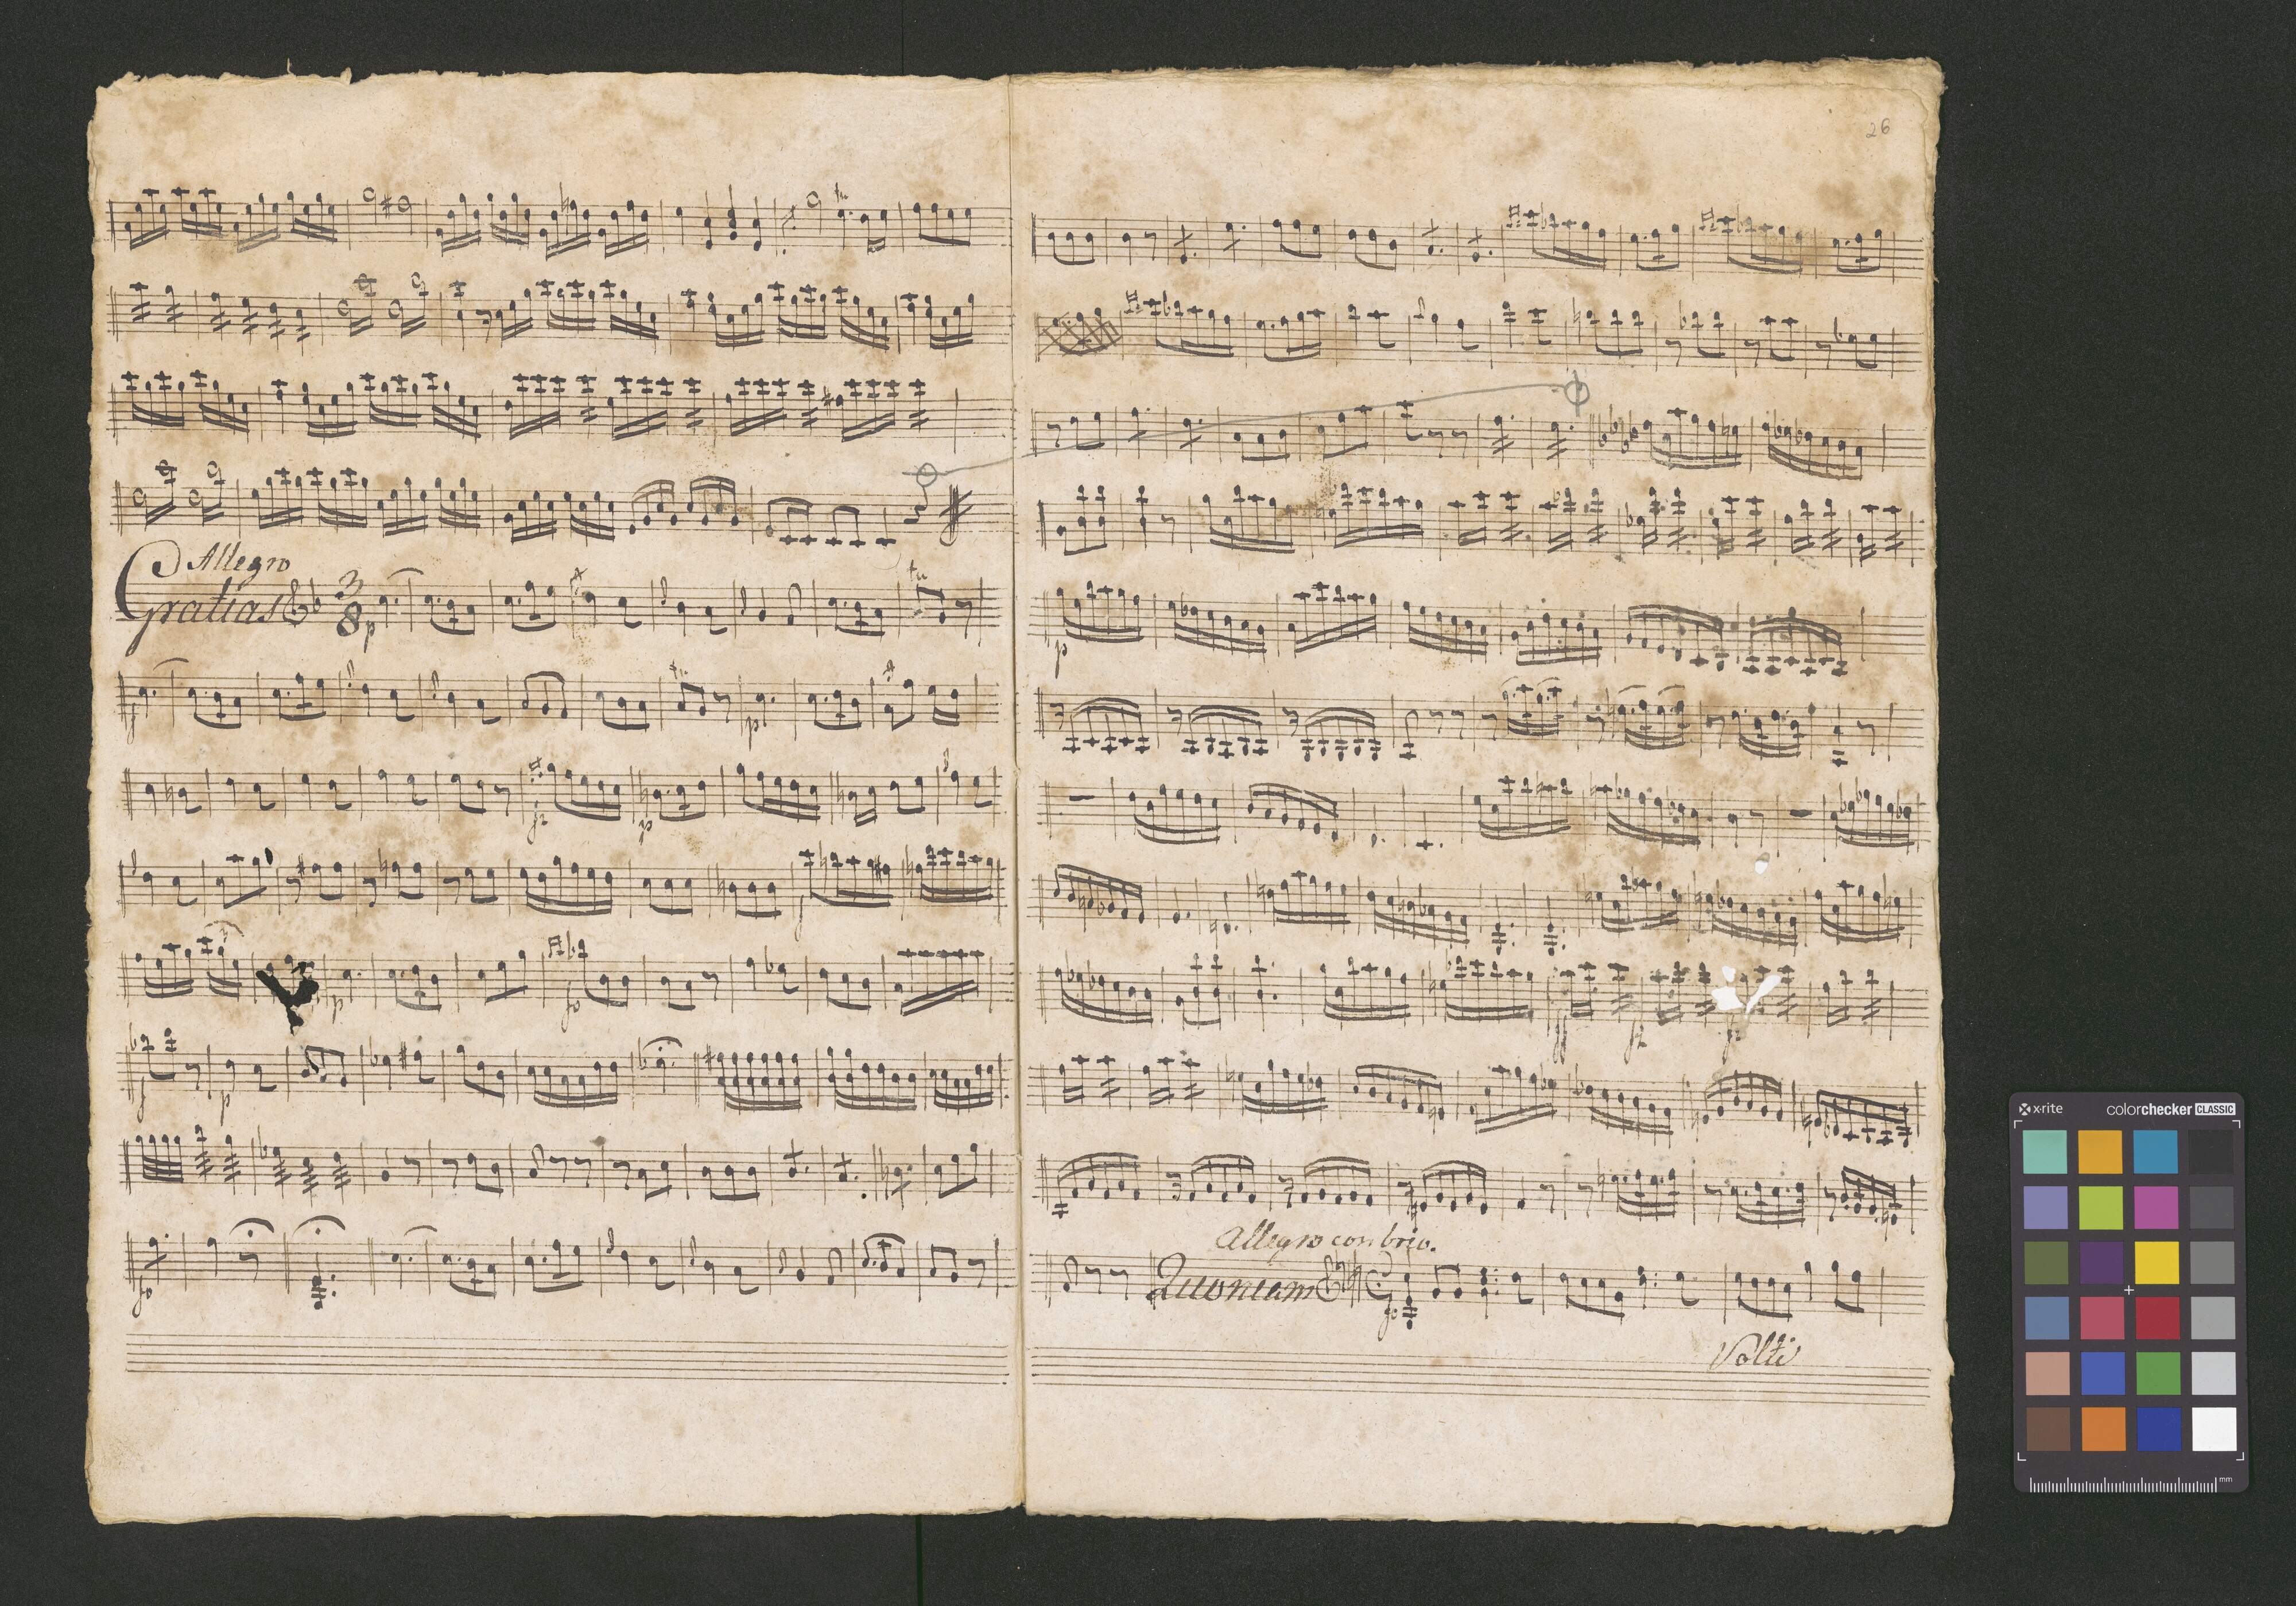 Allegro
Gratias 3
8 p
tr
tr
p
p
3
p
p
26
p
Allegro con brio.
Quoniam
Volti
x-rite colorchecker CLASSIC
mm